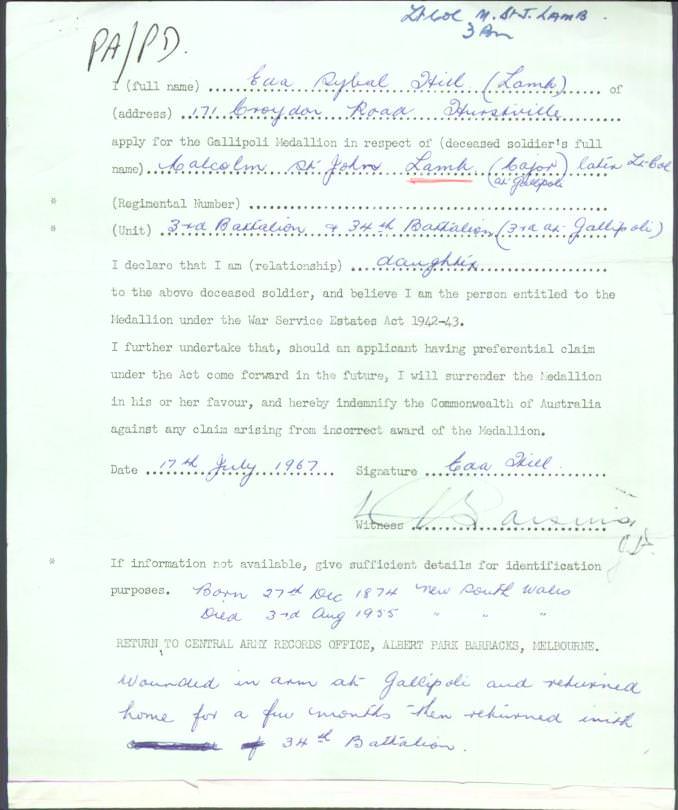 Lt Col M. St J. LAMB.
3 Bn
PA/PD.
I (full name) Eva Sybal Hill (Lamb) of
(address) 171 Croydon Road Hurstville
apply for the Gallipoli Medallion in respect of (deceased soldier's full
name) Malcolm St John Lamb (Major) later Lt-Col
(at Gallipoli
* (Regimental Number)
* (Unit) 3rd Battalion & 34th Battalion (3rd at Gallipoli)
I declare that I am (relationship) daughter
to the above deceased soldier, and believe I am the person entitled to the
Medallion under the War Service Estates Act 1942-43.
I further undertake that, should an applicant having preferential claim
under the Act come forward in the future, I will surrender the Medallion
in his or her favour, and hereby indemnify the Commonwealth of Australia
against any claim arising from incorrect award of the Medallion.
Date 17th July 1967 Signature Eva Hill
Witness
* If information not available, give sufficient details for identification
purposes. Born 27th Dec 1874 New South Wales
Died 3rd Aug 1955 " " "
RETURN TO CENTRAL ARMY RECORDS OFFICE, ALBERT PARK BARRACKS, MELBOURNE.
Wounded in arm at Gallipoli and returned
home for a few months then returned with
34th Battalion.